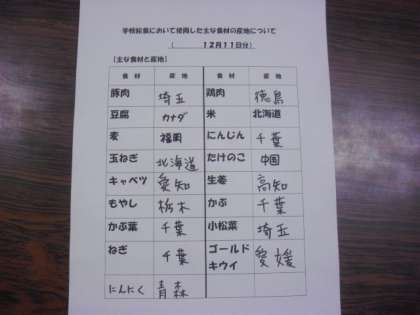 学校給食において使用した主な食材の産地について
( 12月11日分)
【主な食材と産地】
食材 産地 食材 産地
豚肉 埼玉 鶏肉 徳島
豆腐 カナダ 米 北海道
麦 福岡 にんじん 千葉
玉ねぎ 北海道 たけのこ 中国
キャベツ 愛知 生姜 高知
もやし 栃木 かぶ 千葉
かぶ葉 千葉 小松菜 埼玉
ねぎ 千葉 ゴールド
キウイ 愛媛
にんにく 青森